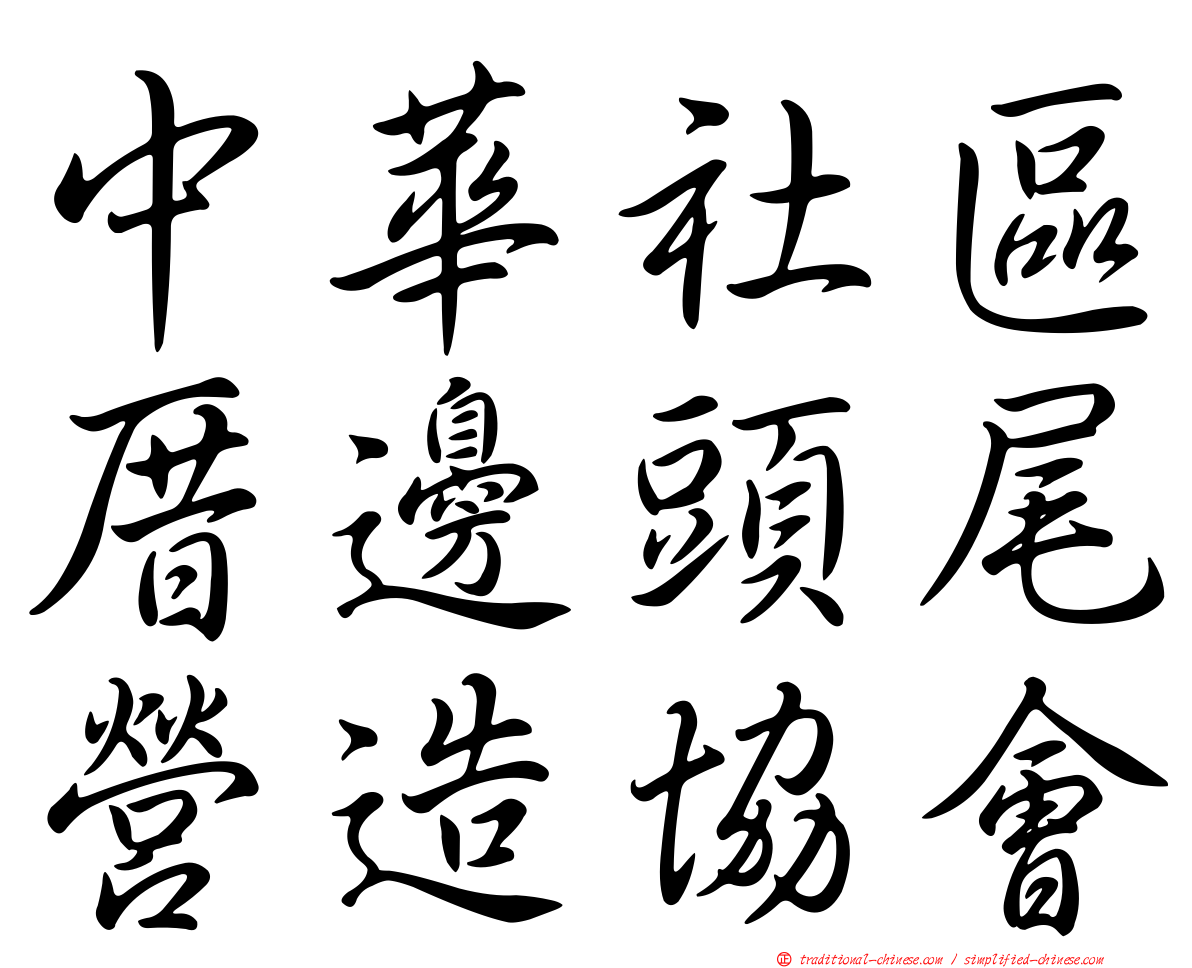 中華社區
厝邊頭尾
營造協會
正 traditional-chinese.com / simplified-chinese.com